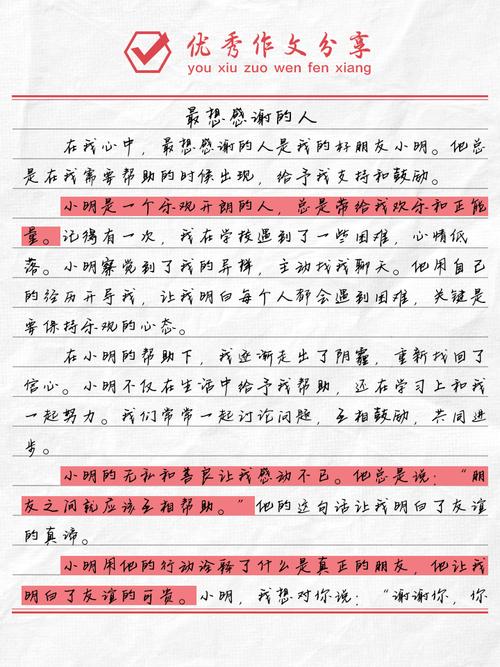 优秀作文分享
you xiu zuo wen fen xiang
最想感谢的人
在我心中，最想感谢的人是我的好朋友小明。他总
是在我需要帮助的时候出现，给予我支持和鼓励。
小明是一个乐观开朗的人，总是带给我欢乐和正能
量。记得有一次，我在学校遇到了一些困难，心情低
落。小明察觉到了我的异样，主动找我聊天。他用自己
的经历开导我，让我明白每个人都会遇到困难，关键是
要保持乐观的心态。
在小明的帮助下，我逐渐走出了阴霾，重新找回了
信心。小明不仅在生活中给予我帮助，还在学习上和我
一起努力。我们常常一起讨论问题，互相鼓励，共同进
步。
小明的无私和善良让我感动不已。他总是说：“朋
友之间就应该互相帮助。”他的这句话让我明白了友谊
的真谛。
小明用他的行动诠释了什么是真正的朋友，他让我
明白了友谊的可贵。小明，我想对你说：“谢谢你，你